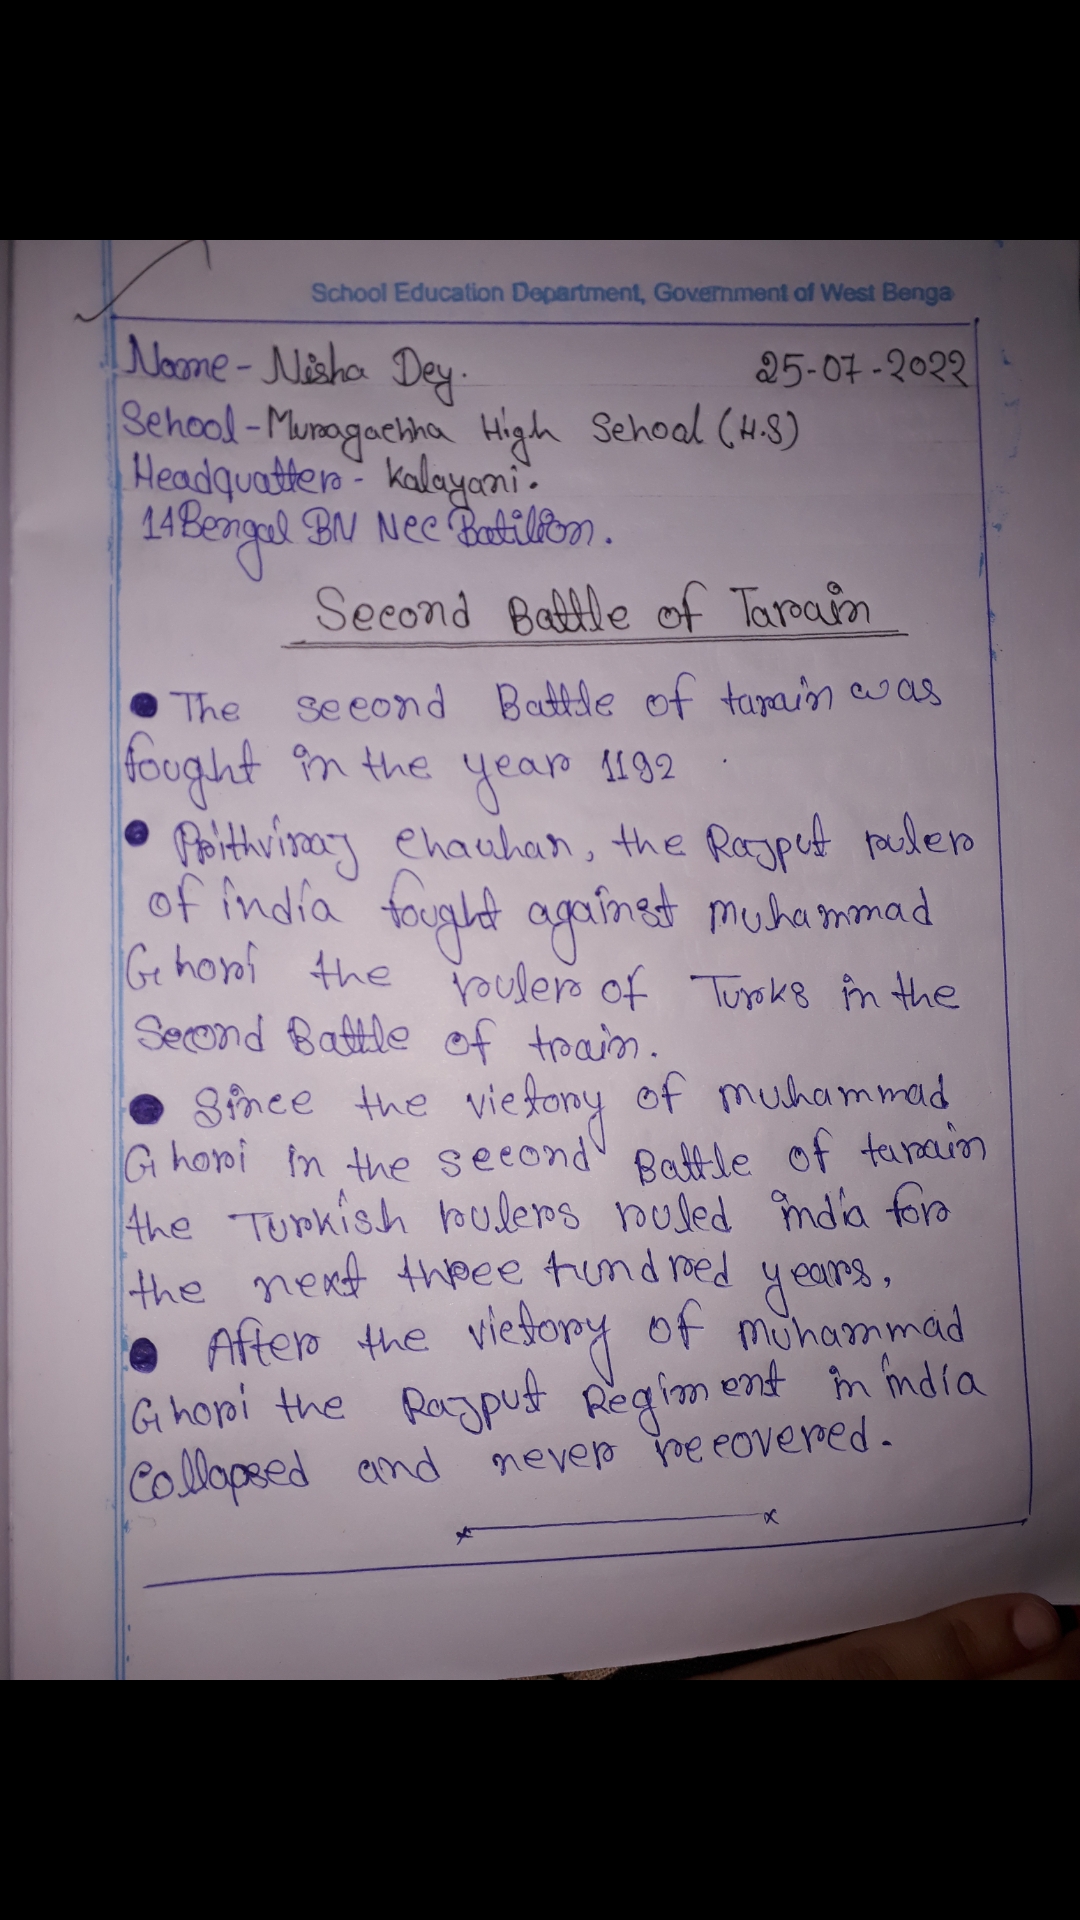 School Education Department, Government of West Benga
Name - Nisha Dey. 25-07-2022
School - Muragachha High School (H.S)
Headquatter - Kalayani.
14 Bengal BN NCC Batilion.
Second Battle of Tarain
● The second Battle of tarain was
fought in the year 1192
● Prithviraj Chauhan, the Rajput ruler
of india fought against muhammad
Ghori the ruler of Turks in the
Second Battle of train.
● Since the victory of muhammad
Ghori in the second Battle of tarain
the Turkish rulers ruled india for
the next three hundred years,
● After the victory of muhammad
Ghori the Rajput Regiment in india
Collapsed and never recovered.